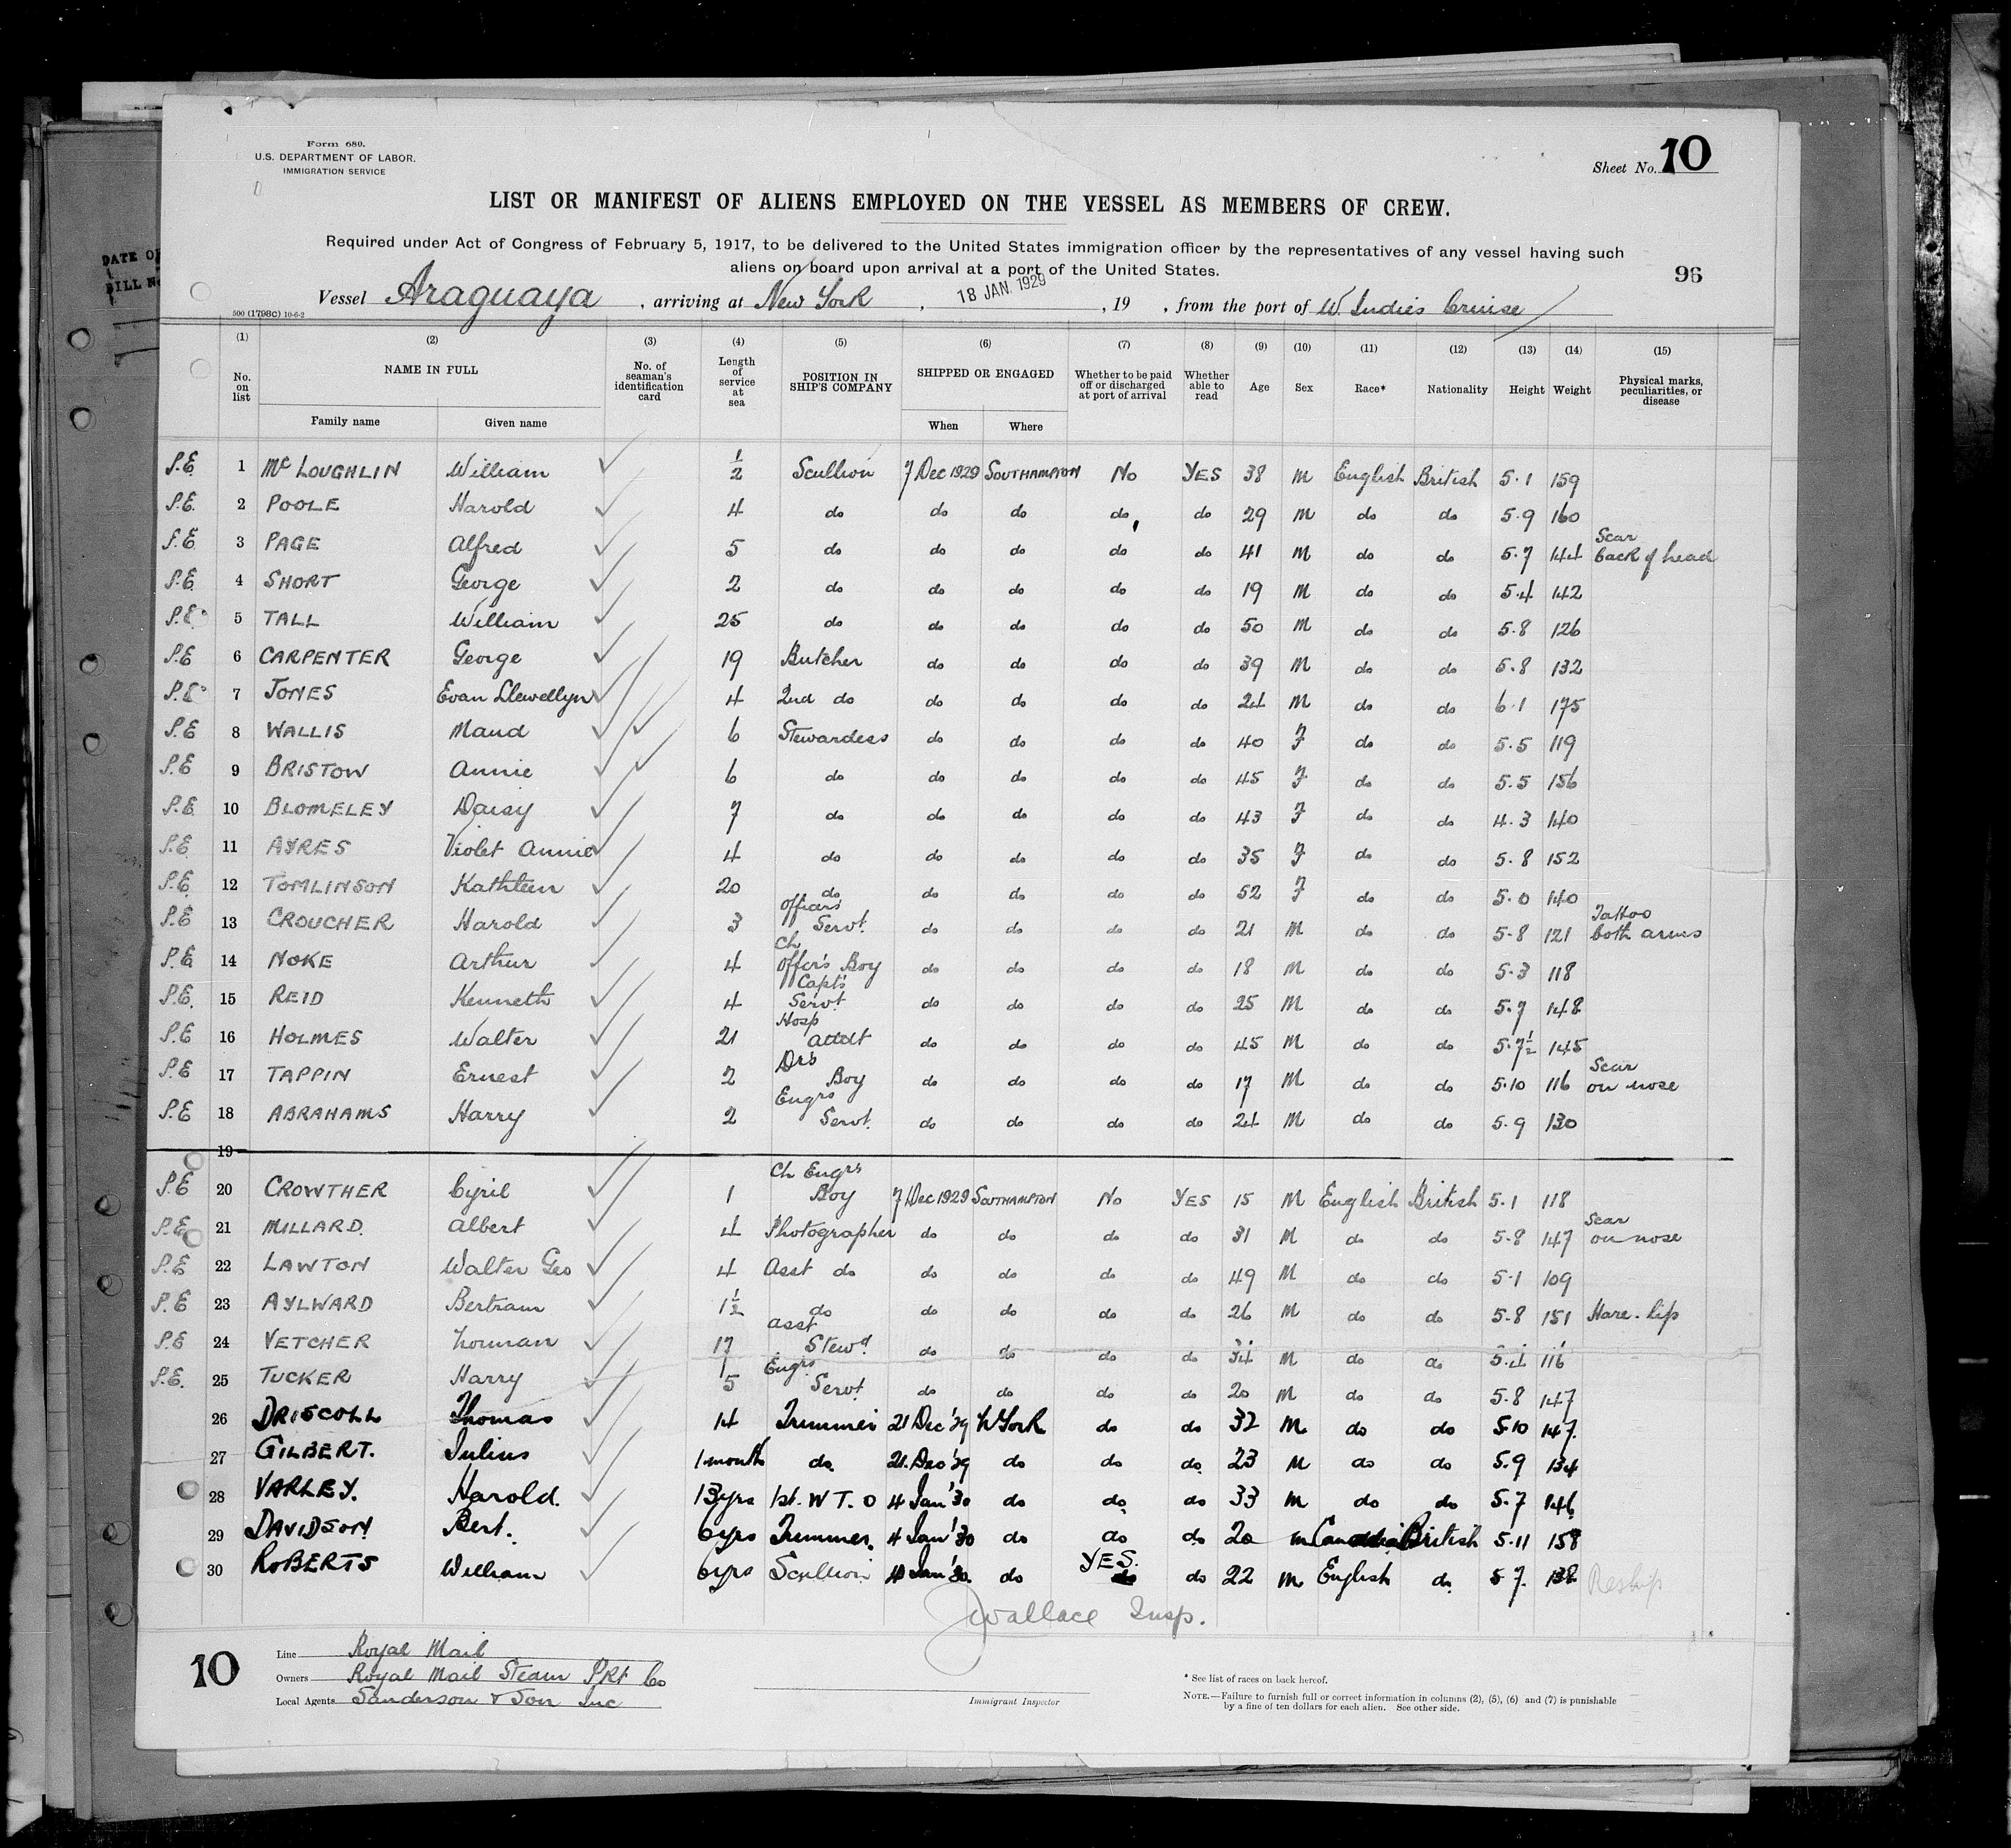 DATE OF
BILL No
Form 680.
U.S. DEPARTMENT OF LABOR.
IMMIGRATION SERVICE
Sheet No. 10
LIST OR MANIFEST OF ALIENS EMPLOYED ON THE VESSEL AS MEMBERS OF CREW.
Required under Act of Congress of February 5, 1917, to be delivered to the United States immigration officer by the representatives of any vessel having such
aliens on board upon arrival at a port of the United States.
96
Vessel Araguaya, arriving at New York, 18 JAN. 1929, 19 , from the port of W. Indies Cruise
500 (1798c) 10-6-2
(1) (2) (3) (4) (5) (6) (7) (8) (9) (10) (11) (12) (13) (14) (15)
No. on list NAME IN FULL Family name Given name No. of seaman's identification card Length of service at sea POSITION IN SHIP'S COMPANY SHIPPED OR ENGAGED When Where Whether to be paid off or discharged at port of arrival Whether able to read Age Sex Race* Nationality Height Weight Physical marks, peculiarities, or disease
P.E. 1 McLOUGHLIN William ½ Scullion 7 Dec 1929 SOUTHAMPTON No YES 38 M English British 5.1 159
P.E. 2 POOLE Harold 4 do do do do do 29 M do do 5.9 160
P.E 3 PAGE Alfred 5 do do do do do 41 M do do 5.7 144 Scar back of head
P.E 4 SHORT George 2 do do do do do 19 M do do 5.4 142
P.E 5 TALL William 25 do do do do do 50 M do do 5.8 126
P.E 6 CARPENTER George 19 Butcher do do do do 39 M do do 5.8 132
P.E 7 JONES Evan Llewellyn 4 2nd do do do do do 24 M do do 6.1 175
P.E 8 WALLIS Maud 6 Stewardess do do do do 40 F do do 5.5 119
P.E 9 BRISTOW Annie 6 do do do do do 45 F do do 5.5 156
P.E 10 BLOMELEY Daisy 7 do do do do do 43 F do do 4.3 140
P.E 11 AYRES Violet Annie 4 do do do do do 35 F do do 5.8 152
P.E. 12 TOMLINSON Kathleen 20 do do do do do 52 F do do 5.0 140
P.E 13 CROUCHER Harold 3 Officers Servt. do do do do 21 M do do 5.8 121 Tattoo both arms
P.E 14 NOKE Arthur 4 Ch Offcr's Boy do do do do 18 M do do 5.3 118
P.E. 15 REID Kenneth 4 Capt's Servt do do do do 25 M do do 5.7 148
P.E 16 HOLMES Walter 21 Hosp attdt do do do do 45 M do do 5.7½ 145
P.E 17 TAPPIN Ernest 2 Dr's Boy do do do do 17 M do do 5.10 116 Scar on nose
P.E 18 ABRAHAMS Harry 2 Engrs Servt. do do do do 24 M do do 5.9 130
19
P.E 20 CROWTHER Cyril 1 Ch Engrs Boy 7 Dec 1929 SOUTHAMPTON No YES 15 M English British 5.1 118
P.E 21 MILLARD. Albert 4 Photographer do do do do 31 M do do 5.8 147 Scar on nose
P.E 22 LAWTON Walter Geo 4 Asst do do do do do 49 M do do 5.1 109
P.E 23 AYLWARD Bertram 1½ do do do do do 26 M do do 5.8 151 Hare-lip
P.E 24 VETCHER Norman 17 asst Stewd do do do do 34 M do do 5.4 116
P.E. 25 TUCKER Harry 5 Engrs Servt. do do do do 20 M do do 5.8 147
26 DRISCOLL Thomas 14 Trimmer 21 Dec '29 N York do do 32 M do do 5.10 147.
27 GILBERT. Julius 1 month do. 21. Dec '29 do do do. 23 M do do 5.9 134
28 VARLEY. Harold. 13 yrs 1st. W T. O 4 Jan '30 do do. do 33 m do do 5.7 146
29 DAVIDSON Bert. 6 yrs Trimmer. 4 Jan '30 do do do 20 m Canadian British 5.11 158
30 ROBERTS William 6 yrs Scullion Jan '30. do YES. do 22 m English do. 5 7. 138 Reship
JWallace Insp.
10
Line Royal Mail
Owners Royal Mail Steam Pkt Co
Local Agents Sanderson & Son Inc
Immigrant Inspector
* See list of races on back hereof.
NOTE.—Failure to furnish full or correct information in columns (2), (5), (6) and (7) is punishable
by a fine of ten dollars for each alien. See other side.